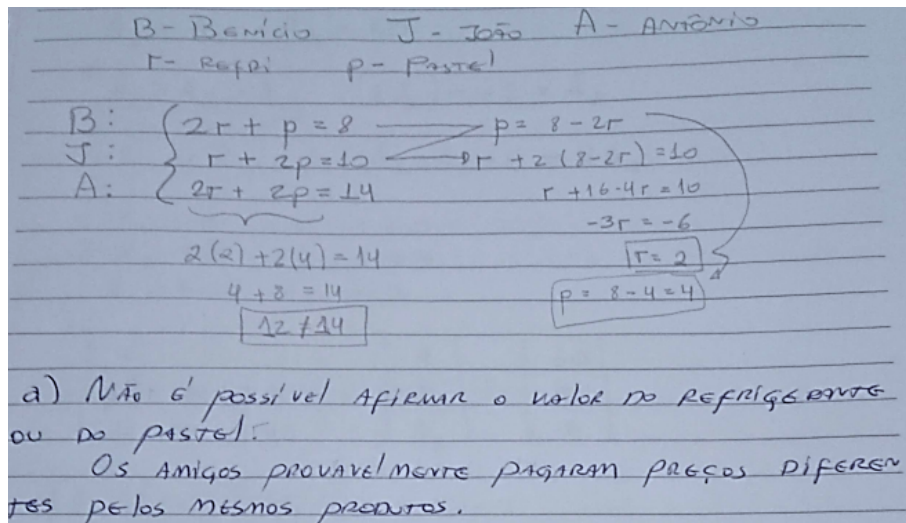 B - Benício J - João A - Antônio
r - Refri p - Pastel
B: 2r + p = 8 p = 8 - 2r
J: r + 2p = 10 r + 2(8-2r) = 10
A: 2r + 2p = 14 r + 16 - 4r = 10
-3r = -6
2(2) + 2(4) = 14 r = 2
4 + 8 = 14 p = 8 - 4 = 4
12 ≠ 14
a) Não é possível afirmar o valor do refrigerante
ou do pastel.
Os amigos provavelmente pagaram preços diferen
tes pelos mesmos produtos.